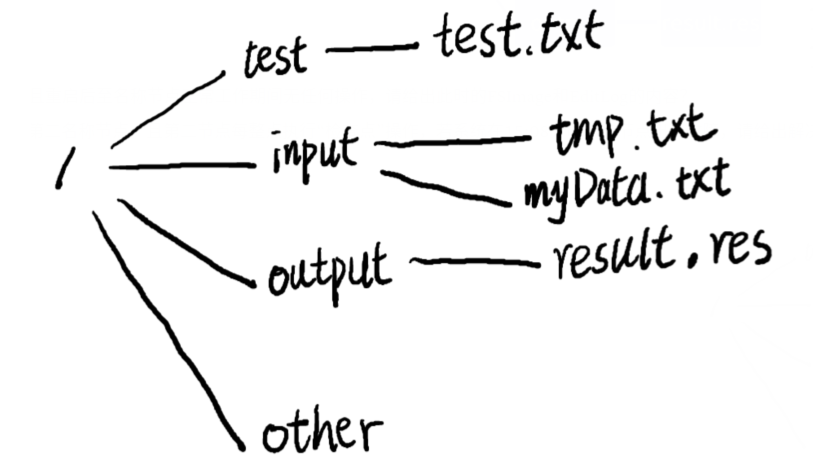 test test.txt
/ input tmp.txt
myData.txt
output result.res
other